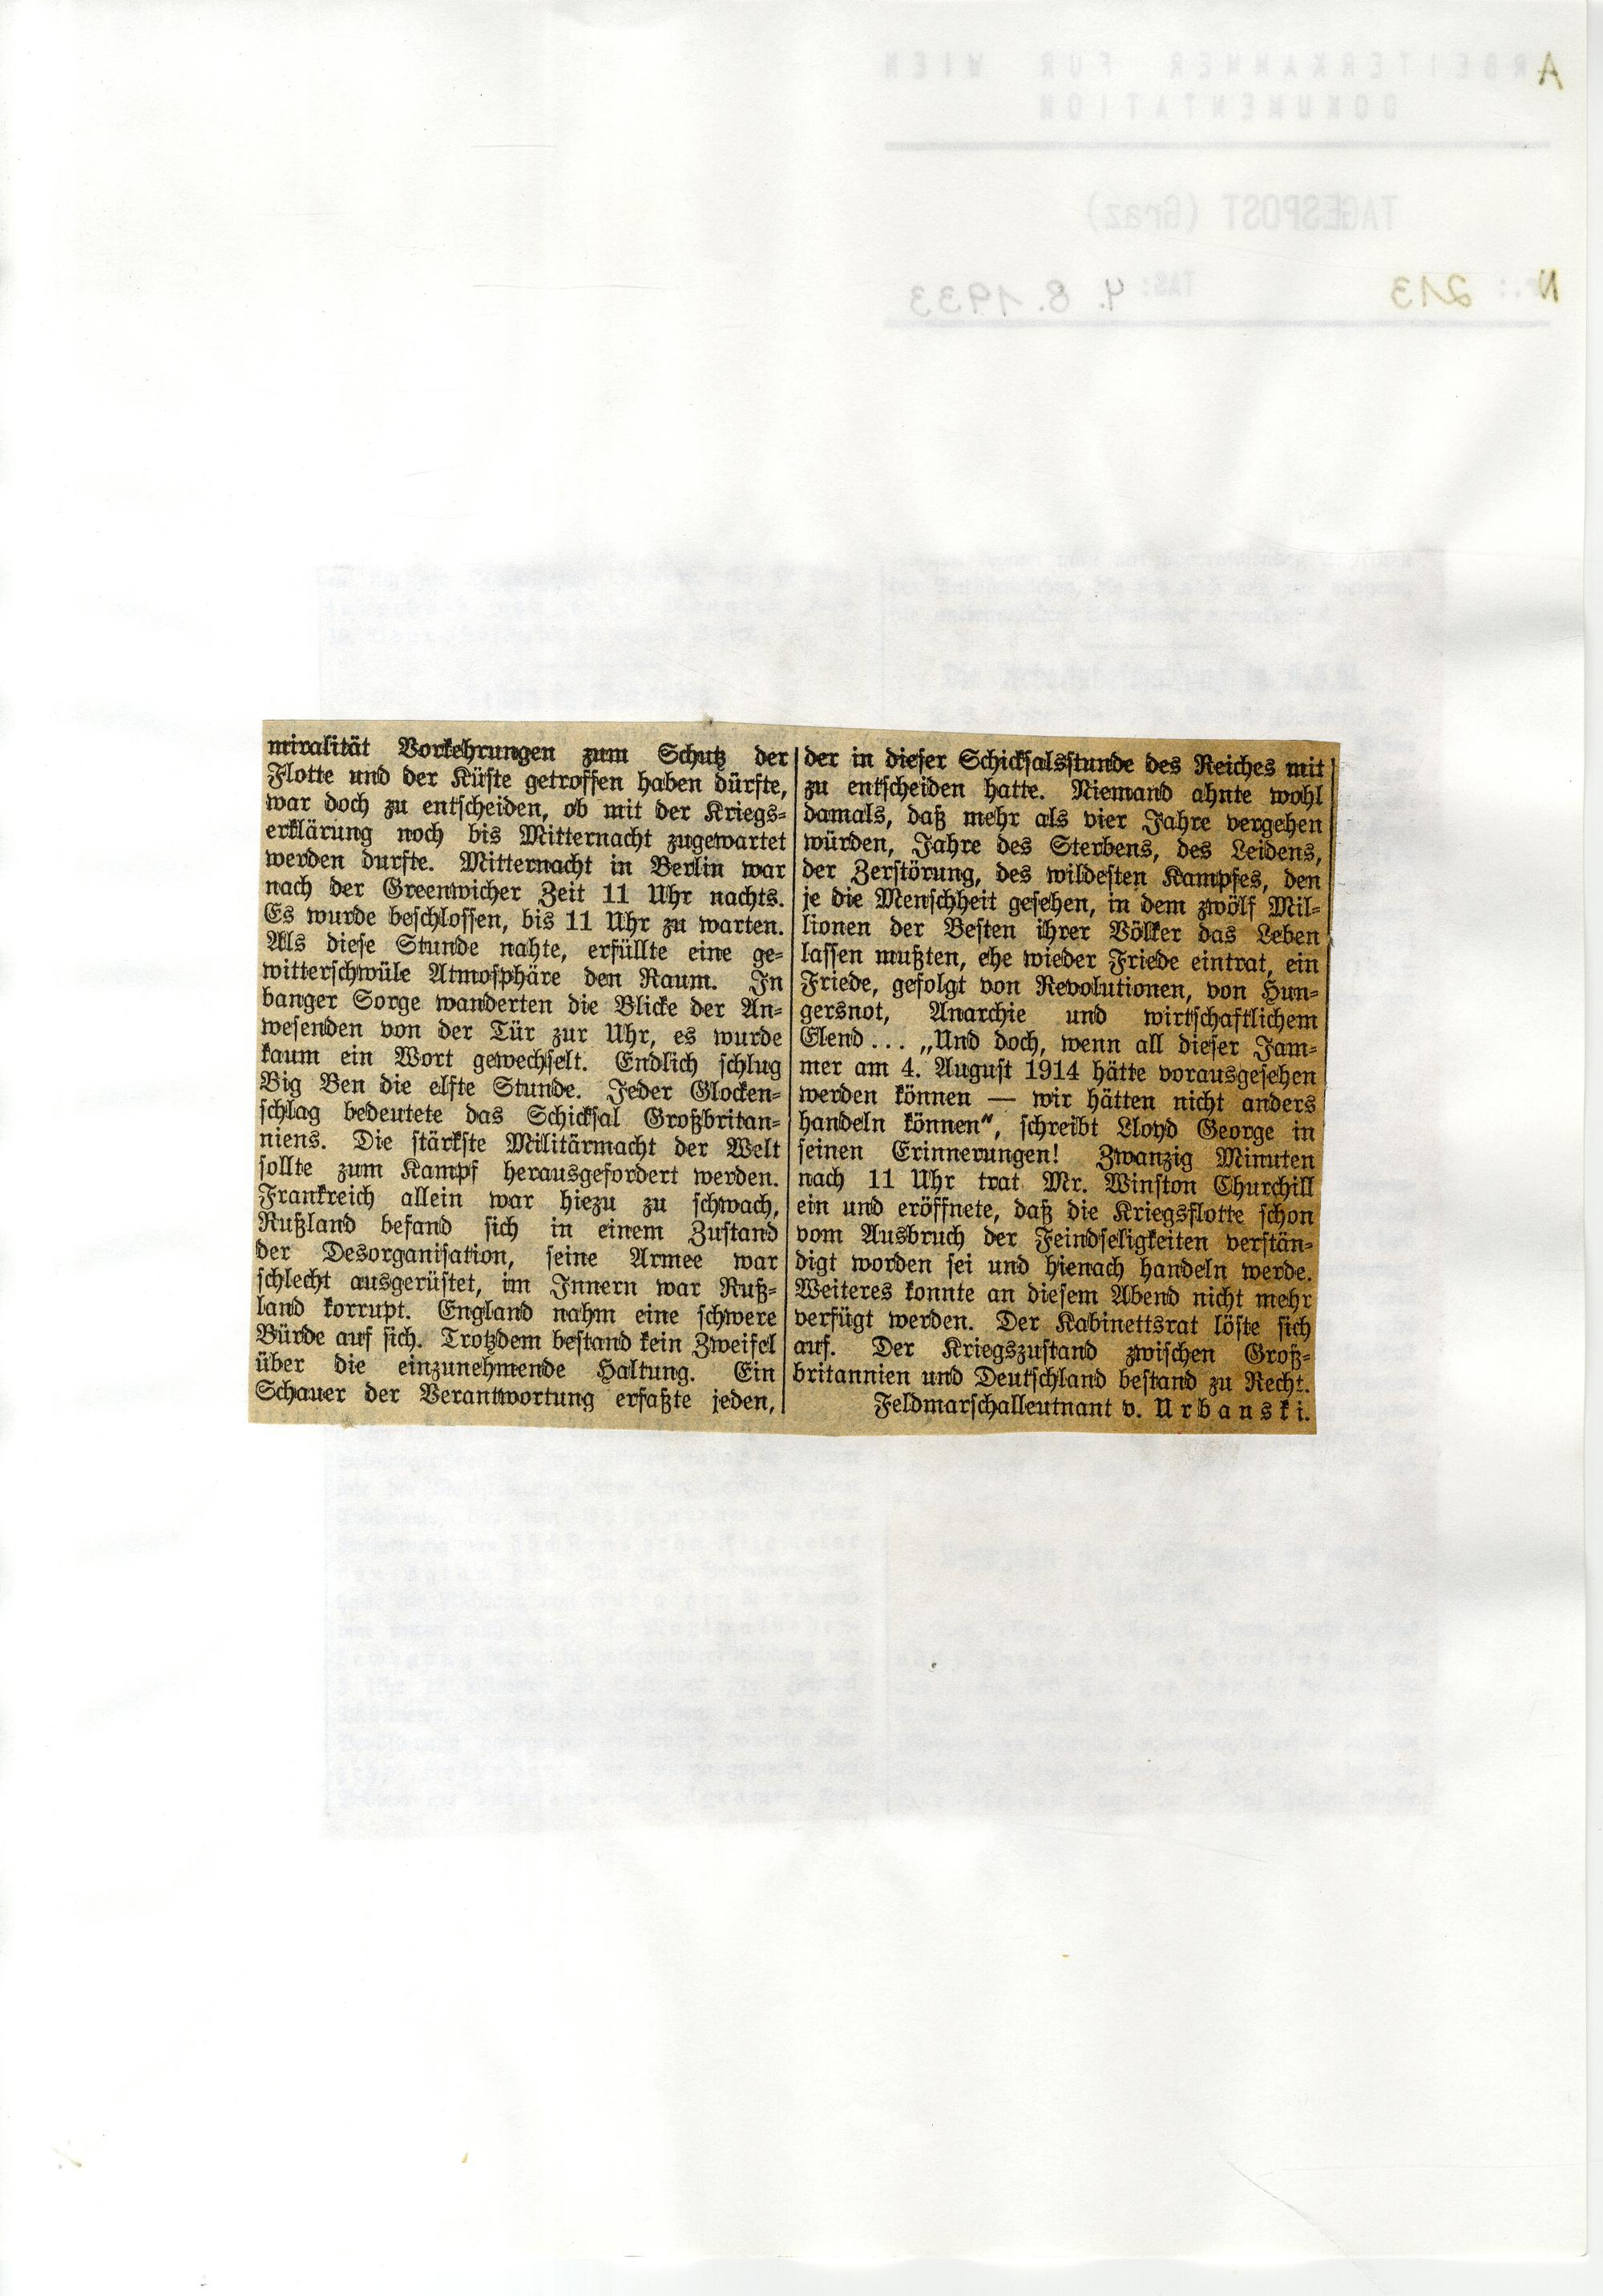 miralität Vorkehrungen zum Schutz der
Flotte und der Küste getroffen haben dürfte,
war doch zu entscheiden, ob mit der Kriegs-
erklärung noch bis Mitternacht zugewartet
werden durfte. Mitternacht in Berlin war
nach der Greenwicher Zeit 11 Uhr nachts.
Es wurde beschlossen, bis 11 Uhr zu warten.
Als diese Stunde nahte, erfüllte eine ge-
witterschwüle Atmosphäre den Raum. In
banger Sorge wanderten die Blicke der An-
wesenden von der Tür zur Uhr, es wurde
kaum ein Wort gewechselt. Endlich schlug
Big Ben die elfte Stunde. Jeder Glocken-
schlag bedeutete das Schicksal Großbritan-
niens. Die stärkste Militärmacht der Welt
sollte zum Kampf herausgefordert werden.
Frankreich allein war hiezu zu schwach,
Rußland befand sich in einem Zustand
der Desorganisation, seine Armee war
schlecht ausgerüstet, im Innern war Ruß-
land korrupt. England nahm eine schwere
Bürde auf sich. Trotzdem bestand kein Zweifel
über die einzunehmende Haltung. Ein
Schauer der Verantwortung erfaßte jeden,
der in dieser Schicksalsstunde des Reiches mit
zu entscheiden hatte. Niemand ahnte wohl
damals, daß mehr als vier Jahre vergehen
würden, Jahre des Sterbens, des Leidens,
der Zerstörung, des wildesten Kampfes, den
je die Menschheit gesehen, in dem zwölf Mil-
lionen der Besten ihrer Völker das Leben
lassen mußten, ehe wieder Friede eintrat, ein
Friede, gefolgt von Revolutionen, von Hun-
gersnot, Anarchie und wirtschaftlichem
Elend... „Und doch, wenn all dieser Jam-
mer am 4. August 1914 hätte vorausgesehen
werden können — wir hätten nicht anders
handeln können“, schreibt Lloyd George in
seinen Erinnerungen! Zwanzig Minuten
nach 11 Uhr trat Mr. Winston Churchill
ein und eröffnete, daß die Kriegsflotte schon
vom Ausbruch der Feindseligkeiten verstän-
digt worden sei und hienach handeln werde.
Weiteres konnte an diesem Abend nicht mehr
verfügt werden. Der Kabinettsrat löste sich
auf. Der Kriegszustand zwischen Groß-
britannien und Deutschland bestand zu Recht.
Feldmarschalleutnant v. Urbanski.
ARBEITERKAMMER FUR WIEN
DOKUMENTATION
TAGESPOST (Graz)
Nr.: 213 TAG: 4. 8. 1933